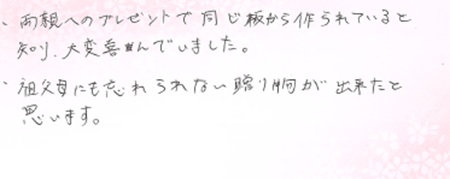 ・両親へのプレゼントで同じ板から作られていると
知り、大変喜んでいました。
・祖父母にも忘れられない贈り物が出来たと
思います。